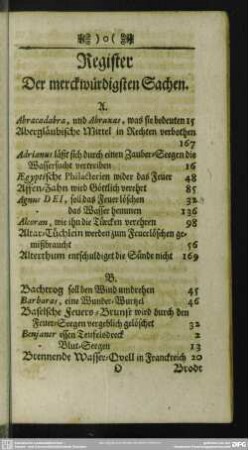 )o(
Register
Der merckwürdigsten Sachen.
A.
Abracadabra, und Abraxas, was sie bedeuten 15
Abergläubische Mittel in Rechten verbothen
167
Adrianus läßt sich durch einen Zauber-Seegen die
Wassersucht vertreiben 16
Ægyptische Philacterien wider das Feuer 48
Affen-Zahn wird Göttlich verehrt 85
Agnus DEI, soll das Feuer löschen 32
- das Wasser hemmen 136
Alcoran, wie ihn die Türcken verehren 98
Altar-Tüchlein werden zum Feuerlöschen ge-
mißbraucht 56
Alterthum entschuldiget die Sünde nicht 169
B.
Bachtrog soll den Wind umdrehen 45
Barbaras, eine Wunder-Wurtzel 46
Baselische Feuers-Brunst wird durch den
Feuer-Seegen vergeblich gelöschet 32
Benjaner essen Teufelsdreck 2
- Blut-Seegen 13
Brennende Wasser-Qvell in Franckreich 20
O Brodt